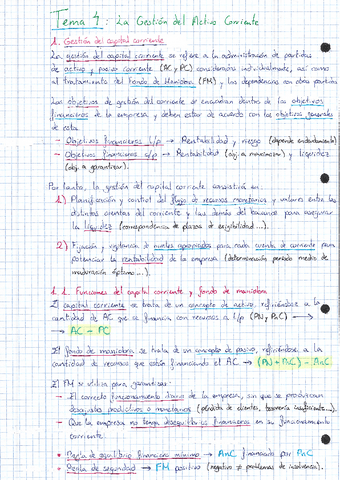 Tema 4: La Gestión del Activo Corriente
1. Gestión del capital corriente
La gestión del capital corriente se refiere a la administración de partidas
de activo y pasivo corriente (AC y PC) consideradas individualmente, así como
al tratamiento del Fondo de Maniobra (FM) y las dependencias con otras partidas
Los objetivos de gestión del corriente se encuadran dentro de los objetivos
financieros de la empresa, y deben estar de acuerdo con los objetivos generales
de esta.
- Objetivos financieros l/p → Rentabilidad y riesgo (depende endeudamiento)
- Objetivos financieros c/p → Rentabilidad (obj. a maximizar) y liquidez
(obj. a garantizar).
Por tanto, la gestión del capital corriente consistirá en:
1) Planificación y control del flujo de recursos monetarios y valores entre las
distintas cuentas del corriente y las demás del balance para asegurar
la liquidez (correspondencia de plazos de exigibilidad ...).
2) Fijación y vigilancia de niveles apropiados para cada cuenta de corriente para
potenciar la rentabilidad de la empresa (determinación periodo medio de
maduración óptimo ...).
1.1. Funciones del capital corriente y fondo de maniobra
El capital corriente se trata de un concepto de activo, refiriéndose a la
cantidad de AC que se financia con recursos a l/p (PN y PnC) →
→ AC - PC
El fondo de maniobra se trata de un concepto de pasivo, refiriéndose a la
cantidad de recursos que están financiando el AC → (PN + PnC) - AnC
El FM se utiliza para garantizar:
- El correcto funcionamiento diario de la empresa, sin que se produzcan
desajustes productivos o monetarios (pérdida de clientes, tesorería insuficiente...).
- Que la empresa no tenga desequilibrios financieros en su funcionamiento
corriente.
• Regla de equilibrio financiero mínimo → AnC financiado por PnC
• Regla de seguridad → FM positivo (negativo ≠ problemas de insolvencia).